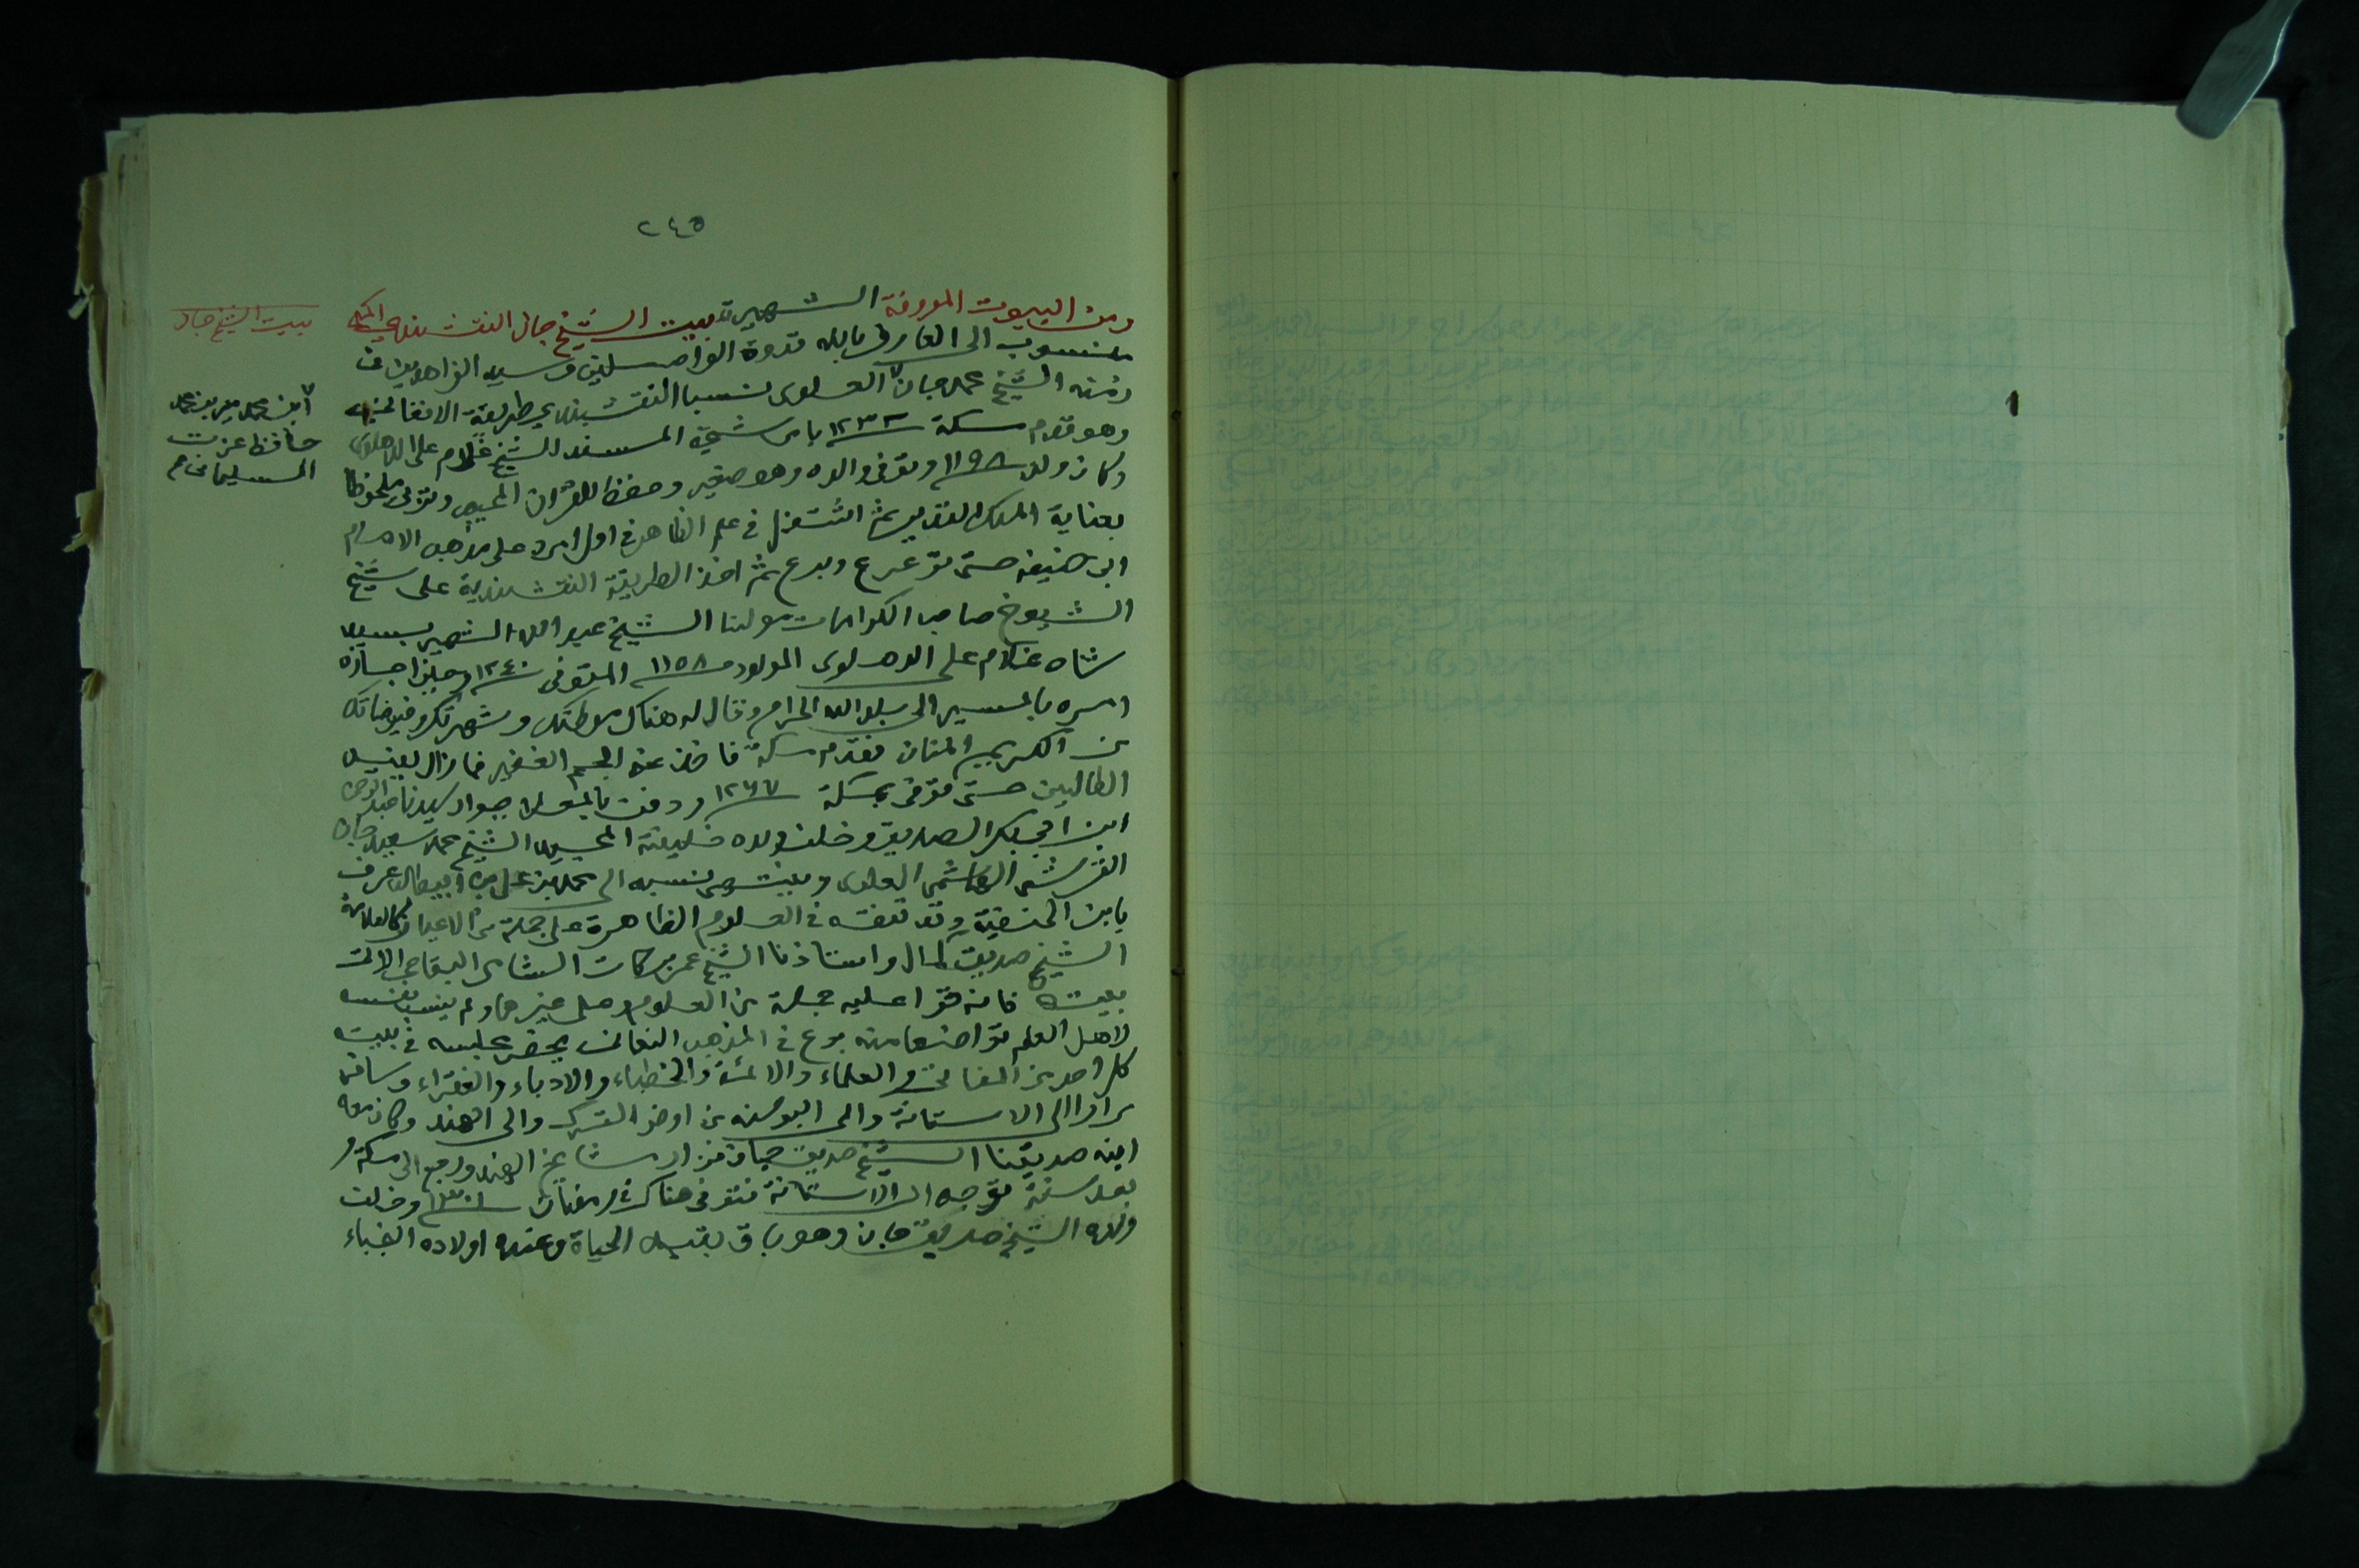 ٢٤٥
ومن البيوت المعروفة الشهيرة بيت الشيخ جان النقشبندي المكي
منسوب الى العارف بالله قدوة الواصلين وسيد الزاهدين في
زمنه الشيخ محمد جان العلوى نسبا النقشبندى طريقة الافغاني
وهو قدم مكة ١٢٣٢ بامر شيخ المسند الشيخ غلام على الدهلوى
وكان ولد ١١٩٨ وتوفى والده وهو صغير وحفظ القرآن المجيد وتولى ملحوظا
بعناية الملك القدير ثم اشتغل في علم الظاهر في اول امره على مذهب الامام
ابى حنيفه حتى ترعرع وبرع ثم اخذ الطريقة النقشبندية على شيخ
الشيوخ صاحب الكرامات مولانا الشيخ عبد الله الشهير بسيد
شاه غلام على الدهلوى المولود ١١٥٨ المتوفى ١٢٤٠ وحين اجازه
امره بالمسير الى بلد الله الحرام وقال له هناك موطنك وشهرتك وفيوضاتك
من الكريم المنان فقدم مكة فاخذ عنه الجم الغفير فما زال يفيد
الطالبين حتى توفى بمكة ١٢٦٧ ودفن بالمعلا جوار سيدنا عبد الرحمن
ابن ابي بكر الصديق وخلف ولده خليفته المجيد الشيخ محمد سعيد جان
القرشى الهاشمى العلوى وينتهى نسبه الى محمد بن على بن ابيطالب عرف
بابن الحنفية وقد تفقه في العلوم الظاهرة على جملة من الاعيان كالعلامة
الشيخ صديق كمال واستاذنا الشيخ عمر بركات الشامى البقاعى الاتى
بيته فانه قرا عليه جملة من العلوم وعلى غيرهما ولم ينسب نفسه
لاهل العلم تواضعا منه برع في المذهب النعمانى يحضر مجلسه في بيته
كل احد من المفاتى والعلماء والائمة والخطباء والادباء والفقراء وسافر
مرارا الى الاستانة والى البوسنه من ارض الترك والى الهند وكان معه
ابنه صديقنا الشيخ صديق جان فزار مشايخ الهند ورجع الى مكة و
بعد سنة توجه الى الاستانة فتوفى هناك في رمضان وخلف
ولده الشيخ صديق جان وهو باق بقيد الحياة وعنده اولاده النجباء
بيت الشيخ جان
ابن محمد مير بن محمد
حافظ عزت
السليمانى